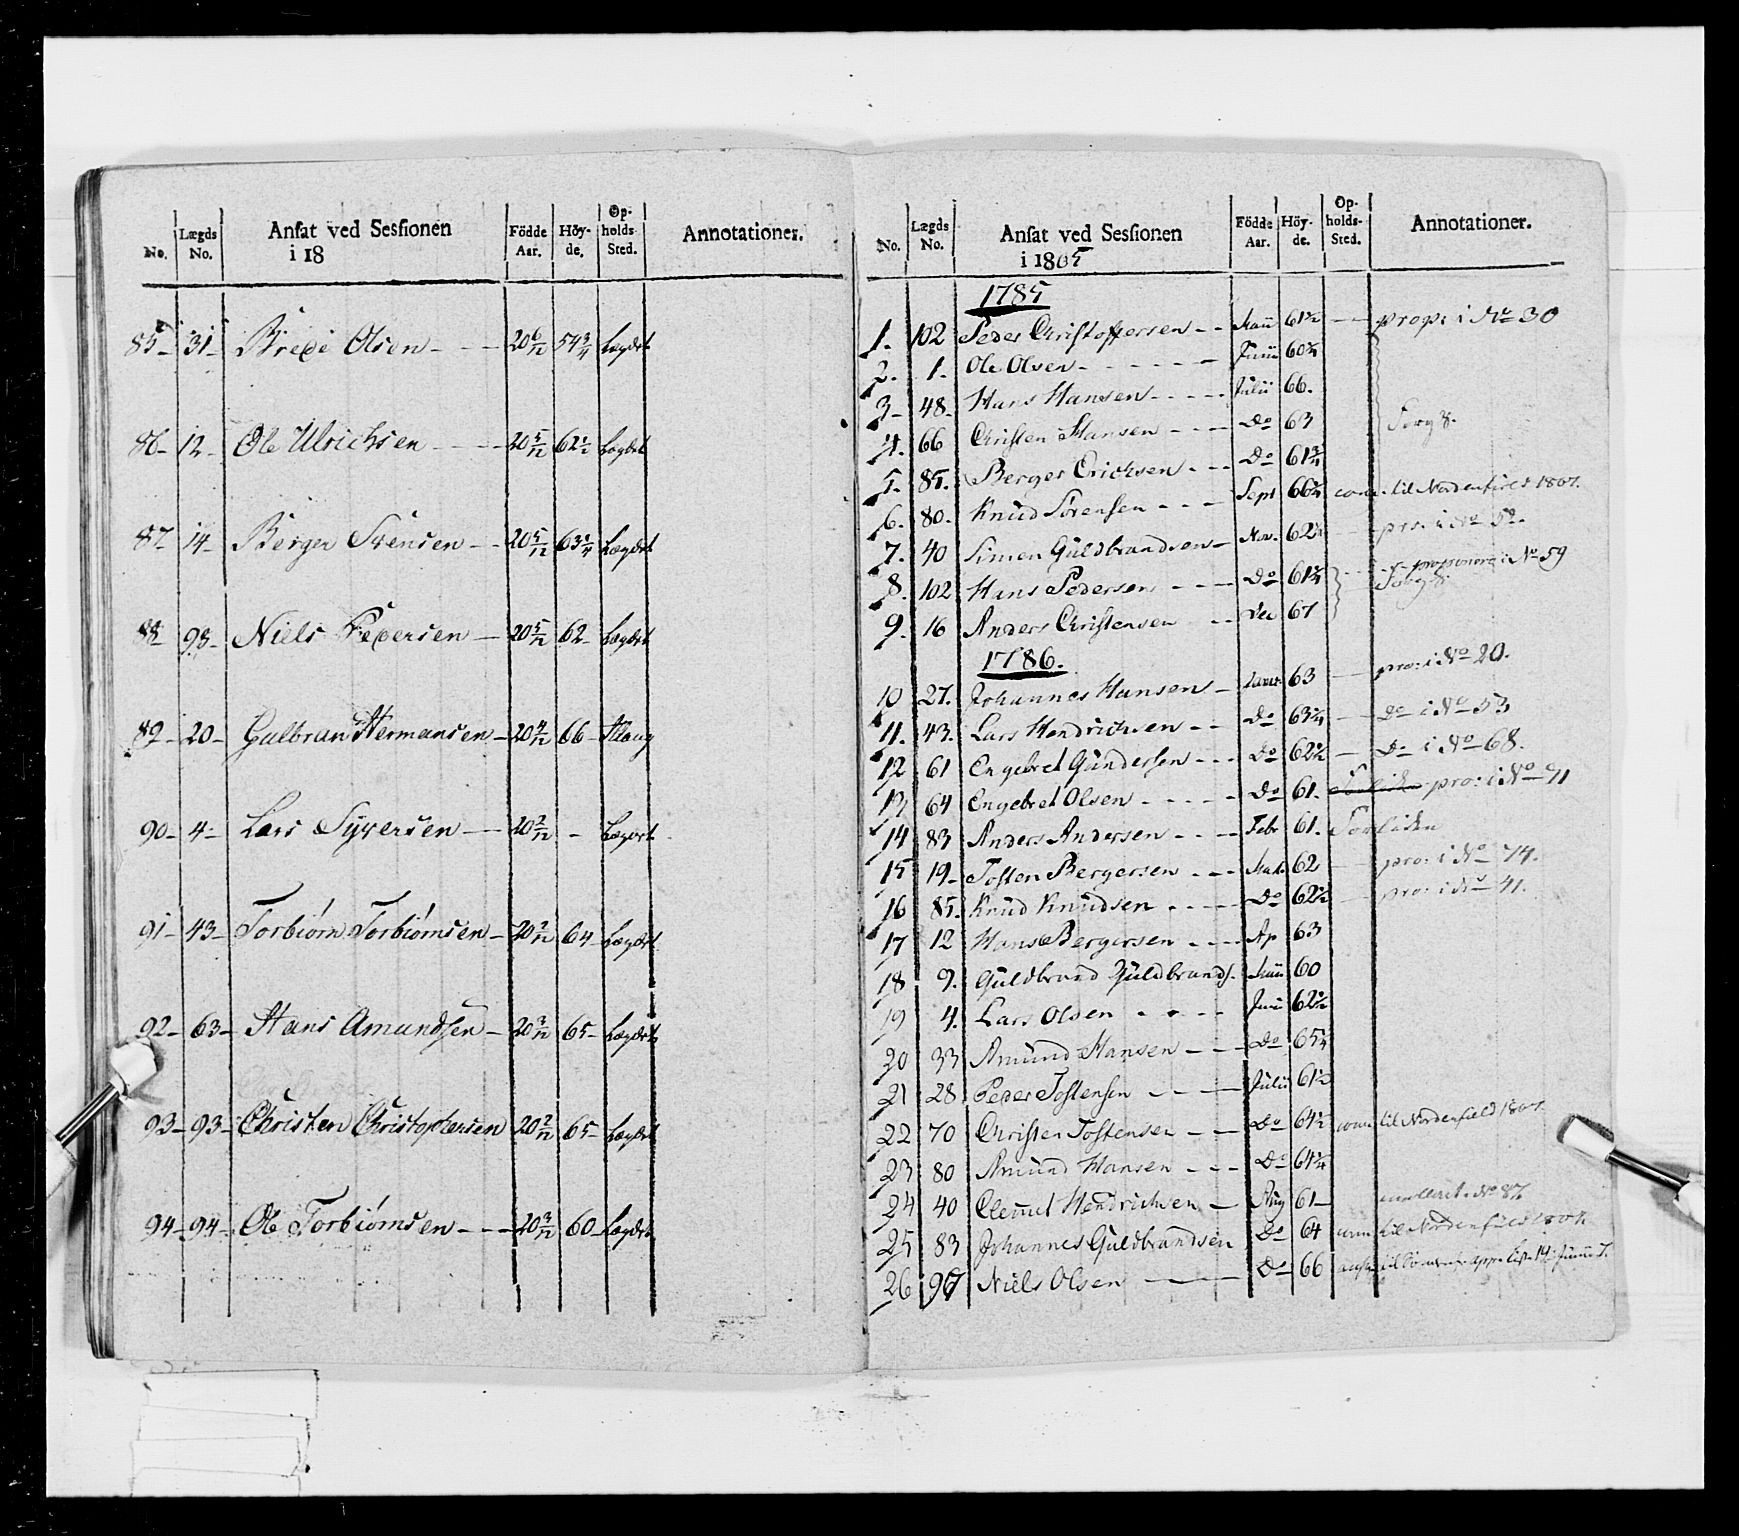 No. Lægds No. Ansat ved Sessionen i 18 Födde Aar. Höyde. Opholds-Sted. Annotationer.
85 31 Olsen 20 6/12 54 3/4 Lægdet
86 12 Ole Ulrichsen 20 5/12 62 1/2 Lægdet
87 14 Berger Svensen 20 5/12 63 1/4 Lægdet
88 98 Niels Pedersen 20 5/12 62 Lægdet
89 20 Gulbran Hermansen 20 4/12 66
90 4 Lars Syversen 20 2/12 - Lægdet
91 43 Torbiörn Torbiörnsen 20 2/12 64 Lægdet
92 63 Hans Amundsen 20 3/12 65 Lægdet
93 93 Christen Christophersen 20 2/12 65 Lægdet
94 94 Ole Torbiörnsen 20 3/12 60 Lægdet
No. Lægds No. Ansat ved Sessionen i 1805 Födde Aar. Höyde. Opholds-Sted. Annotationer.
1785
1. 102 Peder Christoffersen 61 1/2 i No 30
2. 1. Ole Olsen Junii 60 3/4
3 48 Hans Hansen Julii 66.
4. 66 Christen Hansen Do 63
5. 85. Berger Erichsen Do 61 3/4
6. 80. Knud Sörensen Sept 66 3/4 til Nordenfields 1807.
7. 40 Simen Guldbrandsen Nov. 62 1/4 i No 52.
8. 102 Hans Pedersen Do 61 3/4 i No 59
9. 16 Anders Christensen Dec 67
1786.
10 27. Johannes Hansen Januar 63 pro: i No 20.
11. 43. Lars Hendrichsen Do 63 3/4 Do i No 53
12 61 Engebret Gundersen Do 62 1/2 Do i No 68.
13 64 Engebret Olsen Do 61. pro: i No 71
14 83 Anders Andersen Febr 61.
15 19 Tosten Bergersen 62 pro: i No 74.
16 85. Knud Knudsen Do 62 1/2 pro: i No 41.
17 12 Hans Bergersen Ap 63
18 9. Guldbrand Guldbrands. 60
19 4. Lars Olsen Junii 62 1/2
20 33 Amund Hansen Do 65 1/4
21 28 Peder Tostensen Julii 61 1/2
22 70 Christen Tostensen Do 64 1/2 til Nordenfield 1807
23 80 Amund Hansen Do 64 1/4
24 40 Hendrichsen Aug 61 No 87
25 83 Johannes Guldbrandsen Do 64 til Nordenfield 1807
26 96 Niels Olsen Do 66